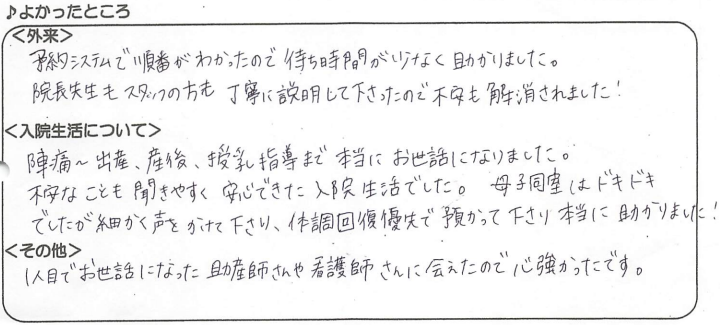 ♪よかったところ
<外来>
予約システムで順番がわかったので待ち時間が少なく助かりました。
院長先生もスタッフの方も丁寧に説明して下さったので不安も解消されました！
<入院生活について>
陣痛～出産、産後、授乳指導まで本当にお世話になりました。
不安なことも聞きやすく安心できた入院生活でした。母子同室はドキドキ
でしたが細かく声をかけて下さり、体調回復優先で預かって下さり本当に助かりました！
<その他>
1人目でお世話になった助産師さんや看護師さんに会えたので心強かったです。